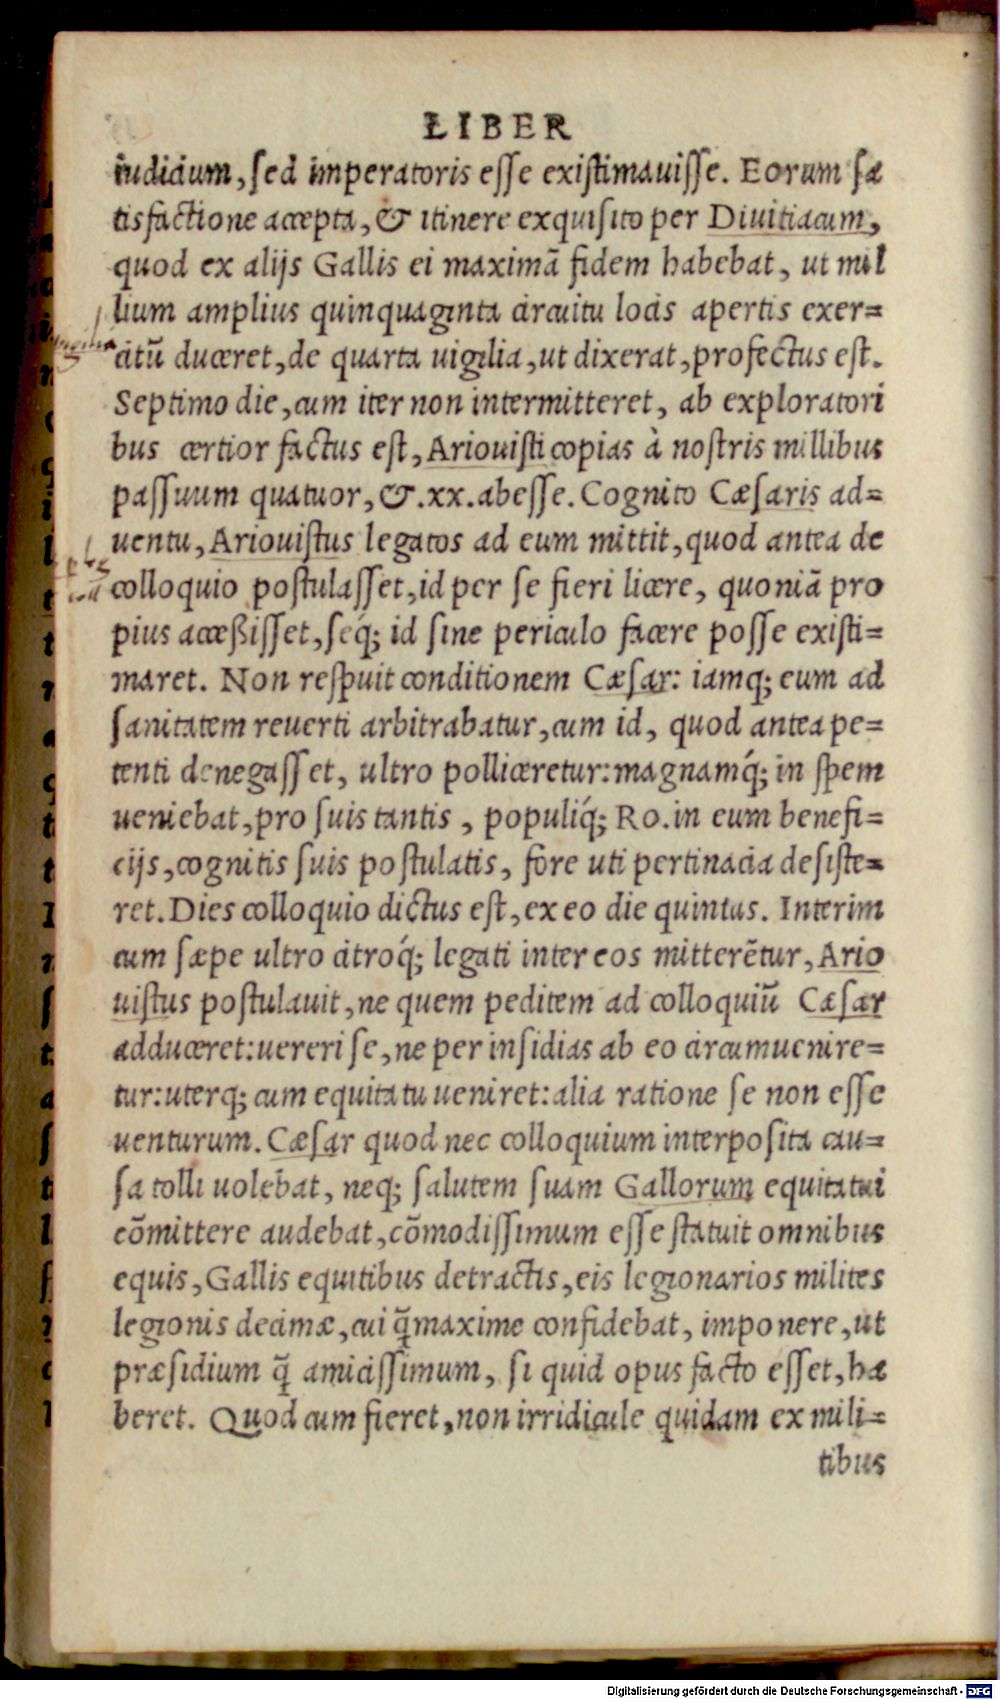 LIBER
iudicium, sed imperatoris esse existimauisse. Eorum sa
tisfactione accepta, & itinere exquisito per Diuitiacum,
quod ex alijs Gallis ei maximā fidem habebat, ut mil
lium amplius quinquaginta circuitu locis apertis exer=
citū duceret, de quarta uigilia, ut dixerat, profectus est.
Septimo die, cum iter non intermitteret, ab exploratori
bus certior factus est, Ariouisti copias à nostris millibus
passuum quatuor, &.xx.abesse. Cognito Cæsaris ad=
uentu, Ariouistus legatos ad eum mittit, quod antea de
colloquio postulasset, id per se fieri licere, quoniā pro
pius acceßisset, seq́; id sine periculo facere posse existi=
maret. Non respuit conditionem Cæsar: iamq; eum ad
sanitatem reuerti arbitrabatur, cum id, quod antea pe=
tenti denegasset, ultro polliceretur: magnamq́; in spem
ueniebat, pro suis tantis, populiq́; Ro. in eum benefi=
cijs, cognitis suis postulatis, fore uti pertinacia desiste=
ret. Dies colloquio dictus est, ex eo die quintus. Interim
cum sæpe ultro citroq́; legati inter eos mitterētur, Ario
uistus postulauit, ne quem peditem ad colloquiū Cæsar
adduceret: uereri se, ne per insidias ab eo circumuenire=
tur: uterq; cum equitatu ueniret: alia ratione se non esse
uenturum. Cæsar quod nec colloquium interposita cau=
sa tolli uolebat, neq; salutem suam Gallorum equitatui
cōmittere audebat, cōmodissimum esse statuit omnibus
equis, Gallis equitibus detractis, eis legionarios milites
legionis decimæ, cui q̄maxime confidebat, imponere, ut
præsidium q̄ amicissimum, si quid opus facto esset, ha
beret. Quod cum fieret, non irridicule quidam ex mili=
tibus
Digitalisierung gefördert durch die Deutsche Forschungsgemeinschaft - DFG